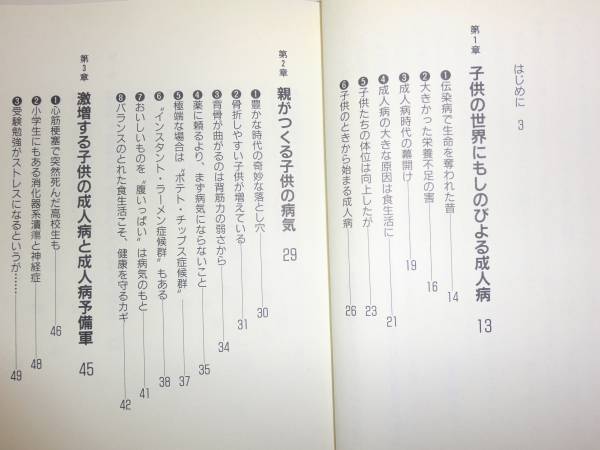 はじめに 3
第1章 子供の世界にもしのびよる成人病 13
❶伝染病で生命を奪われた昔 14
❷大きかった栄養不足の害 16
❸成人病時代の幕開け 19
❹成人病の大きな原因は食生活に 21
❺子供たちの体位は向上したが 23
❻子供のときから始まる成人病 26
第2章 親がつくる子供の病気 29
❶豊かな時代の奇妙な落とし穴 30
❷骨折しやすい子供が増えている 31
❸背骨が曲がるのは背筋力の弱さから 34
❹薬に頼るより、まず病気にならないこと 35
❺極端な場合は〝ポテト・チップス症候群〟 37
❻〝インスタント・ラーメン症候群〟もある 38
❼おいしいものを〝腹いっぱい〟は病気のもと 41
❽バランスのとれた食生活こそ、健康を守るカギ 42
第3章 激増する子供の成人病と成人病予備軍 45
❶心筋梗塞で突然死んだ高校生も 46
❷小学生にもある消化器系潰瘍と神経症 48
❸受験勉強がストレスになるというが…… 49